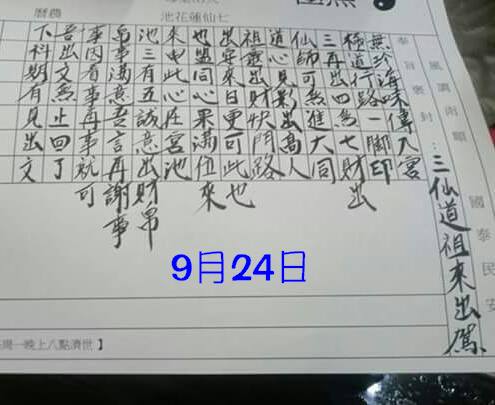 池花蓮仙七
曆農
風調雨順
國泰民安
奉旨褒封:三仙道祖來出駕
無珍海味傳入宮
極道行路一腳印
三再出四為七財出
仙師可為進大同
道心見影出高人
祖靈出財快門路
出安來日更可此也
也盟同果滿位來
來申此心在宮池
池三有五誠意出財帛
萬事滿意吾言再謝事
事因有事再事就可
吾出文無止回了
下科期有見出文
9月24日
周一晚上八點濟世】